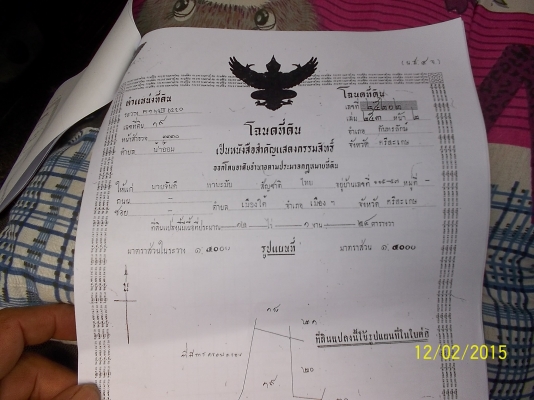 (น.ส.๔ จ)
ตำแหน่งที่ดิน
ระวาง
เลขที่ดิน ๑๙
หน้าสำรวจ
ตำบล น้ำอ้อม
โฉนดที่ดิน
เลขที่
เล่ม ๒๕๓ หน้า ๒
อำเภอ กันทรลักษ์
จังหวัด ศรีสะเกษ
โฉนดที่ดิน
เป็นหนังสือสำคัญแสดงกรรมสิทธิ์
ออกโดยอาศัยอำนาจตามประมวลกฎหมายที่ดิน
ให้แก่ สัญชาติ ไทย อยู่บ้านเลขที่ หมู่ที่ -
ถนน - ตำบล เมืองใต้ อำเภอ เมือง ฯ จังหวัด ศรีสะเกษ
ซอย
ที่ดินแปลงนี้เนื้อที่ประมาณ ไร่ ๑ งาน ๒๔ ตารางวา
มาตราส่วนในระวาง ๑:๕๐๐๐ รูปแผนที่ มาตราส่วน ๑:๕๐๐๐
น
๑๘
๒๑
ที่ดินแปลงนี้ใช้รูปแผนที่ในใบต่อ
ที่สาธารณะ
๒๐
๑๙
12/02/2015